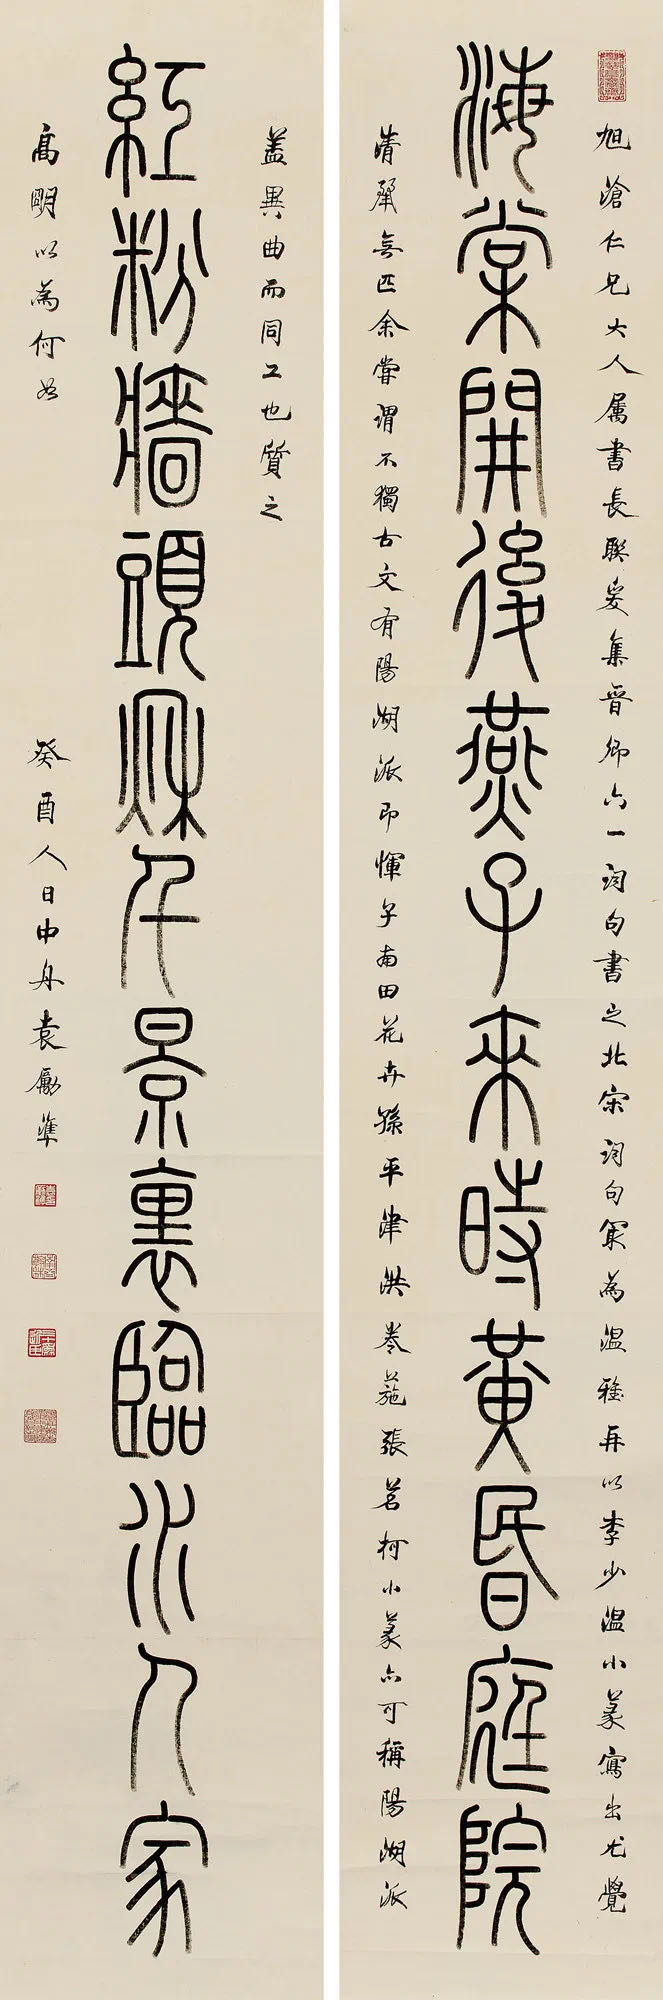 海棠開後燕子來時黃昏庭院
紅粉牆頭秌千景裏臨水人家
旭滄仁兄大人屬書長聯爰集晉卿六一詞句書之北宋詞句最為溫雅再以李少溫小篆寫出尤覺
清犖無匹余嘗謂不獨古文有陽湖派即惲子南田花卉孫平津洪卷葹張茗柯小篆亦可稱陽湖派
蓋異曲而同工也質之
高明以為何如
癸酉人日中舟袁勵準